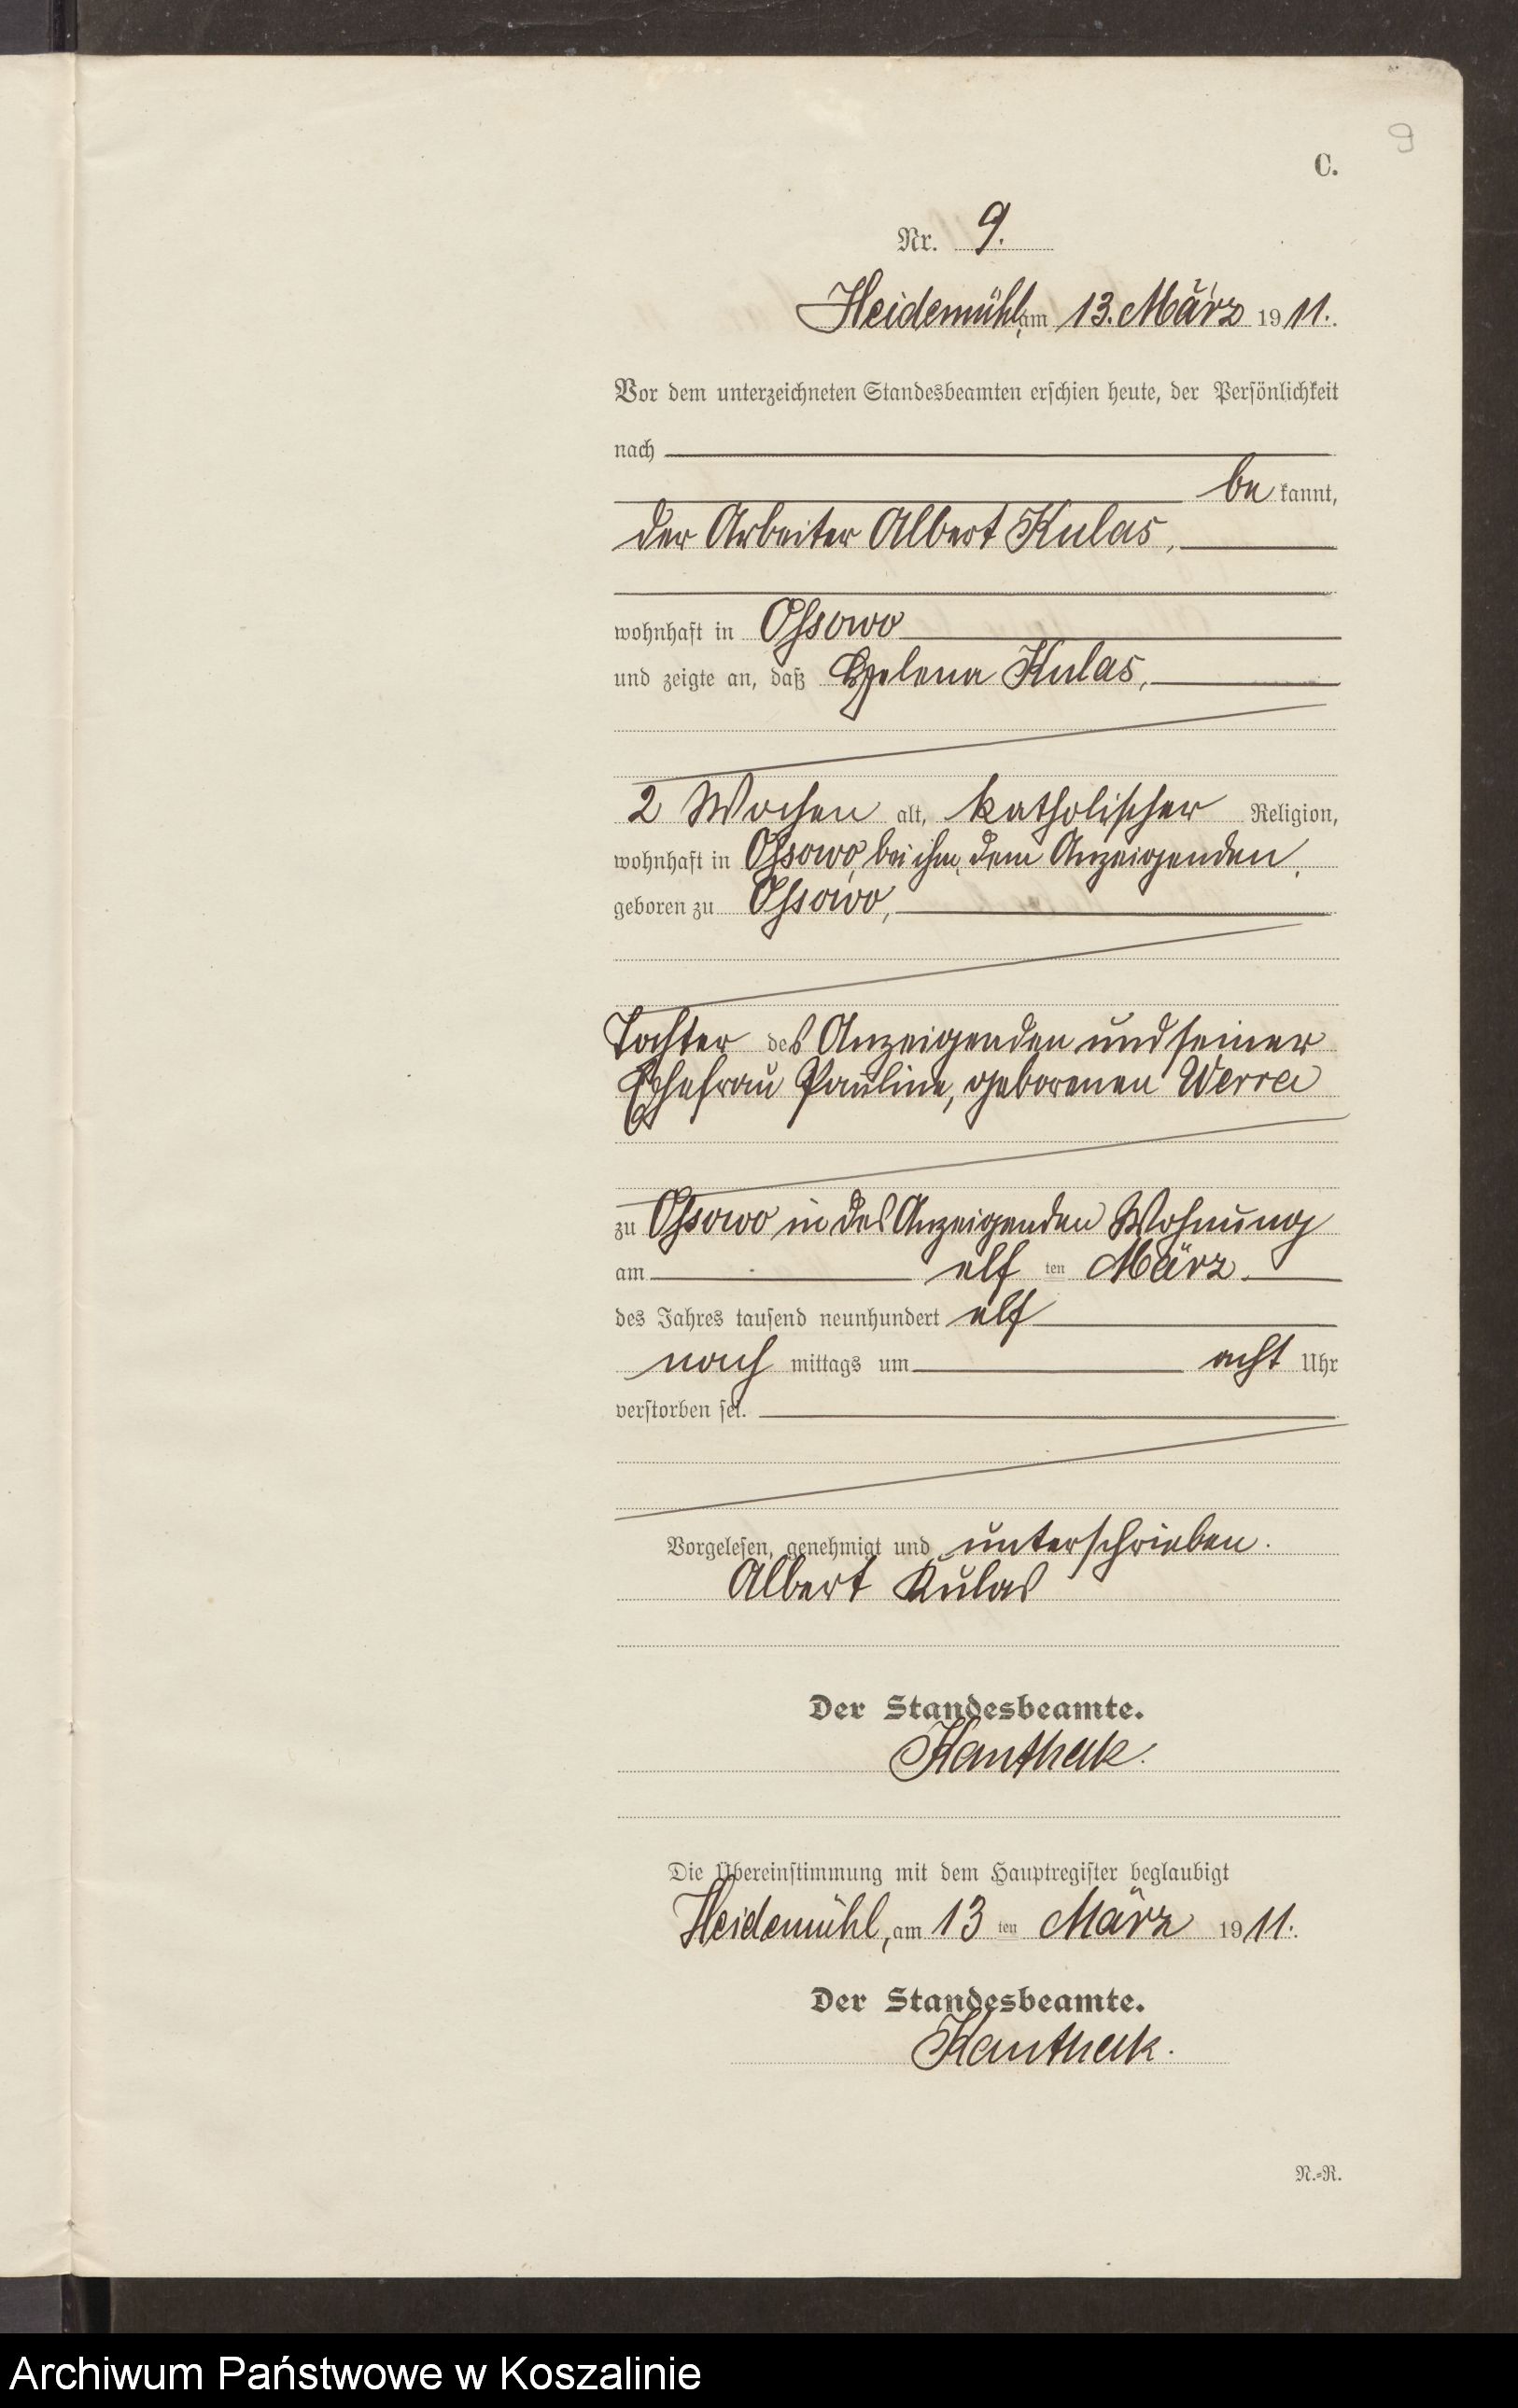 9
C.
Nr. 9.
Heidemühl, am 13. März 1911.
Vor dem unterzeichneten Standesbeamten erschien heute, der Persönlichkeit
nach
bekannt,
der Arbeiter Albert Kulas,
wohnhaft in Ossowo
und zeigte an, daß Helena Kulas,
2 Wochen alt, katholischer Religion,
wohnhaft in Ossowo, bei ihm, dem Anzeigenden,
geboren zu Ossowo,
Tochter des Anzeigenden und seiner
Ehefrau Pauline, geborenen Werra
zu Ossowo in des Anzeigenden Wohnung
am elften März
des Jahres tausend neunhundert elf
nachmittags um acht Uhr
verstorben sei.
Vorgelesen, genehmigt und unterschrieben.
Albert Kulas
Der Standesbeamte.
Kanthak.
Die Übereinstimmung mit dem Hauptregister beglaubigt
Heidemühl, am 13ten März 1911.
Der Standesbeamte.
Kanthak.
N.=R.
Archiwum Państwowe w Koszalinie